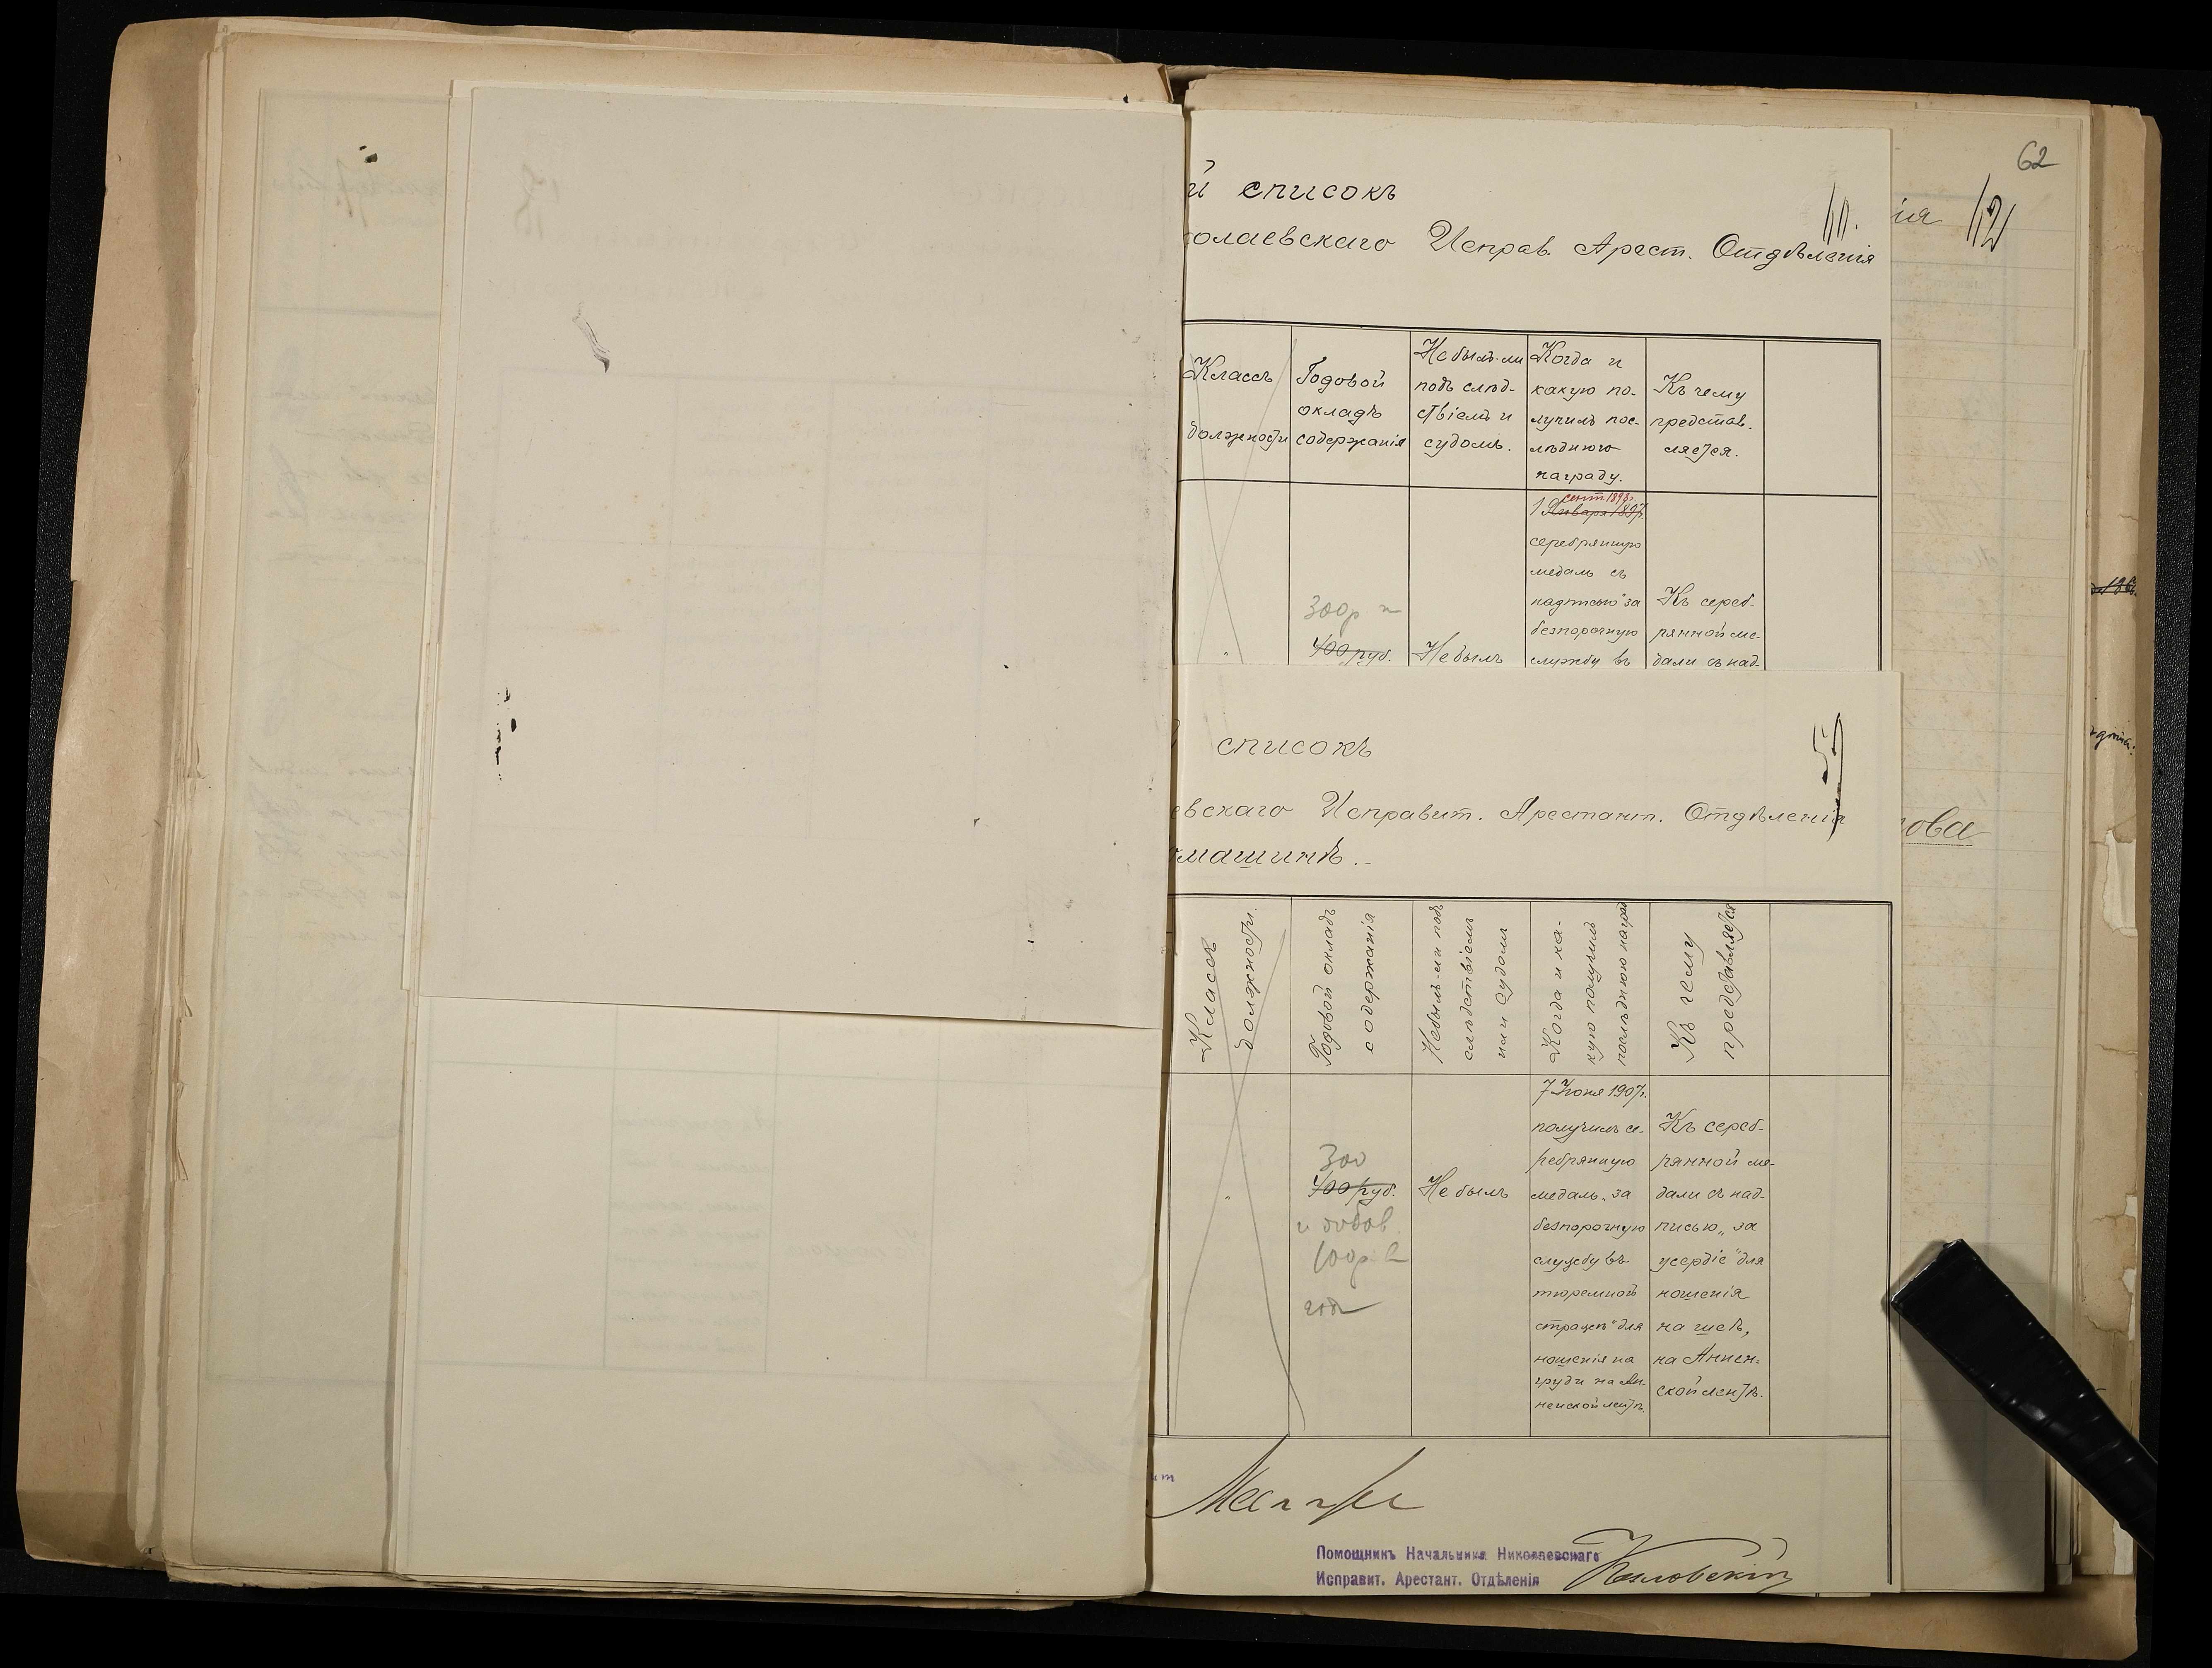 62
й списокъ
олаевскаго Исправ. Арест. Отдѣленія
ія
Классъ
должности
Годовой
окладъ
содержанія
Не былъ-ли
подъ слѣд-
ствіемъ и
судомъ.
Когда и
какую по-
лучилъ пос-
лѣднюю
награду.
Къ чему
представ.
ляется.
"
300р
400 руб.
Не былъ
сент. 1898г.
1 Января 1897г.
серебрянную
медаль съ
надписью "за
безпорочную
службу въ
Къ сереб-
рянной ме-
дали съ над-
списокъ
евскаго Исправит. Арестант. Отдѣленія
машинѣ.-
ова
Классъ
должности.
Годовой окладъ
содержанія
Не былъ-ли подъ
слѣдствіемъ
или судомъ
Когда и ка-
кую получилъ
послѣднюю наград
Къ чему
представляется
"
300
400 руб.
и добав.
100р. в
год
Не былъ
7 Іюня 1907г.
получилъ се-
ребрянную
медаль "за
безпорочную
службу въ
тюремной
стражѣ" для
ношенія на
груди на Ан-
ненской лентѣ.
Къ сереб-
рянной ме-
дали съ над-
писью "за
усердіе" для
ношенія
на шеѣ,
на Аннен-
ской лентѣ.
Помощникъ Начальника Николаевскаго
Исправит. Арестант. Отдѣленія